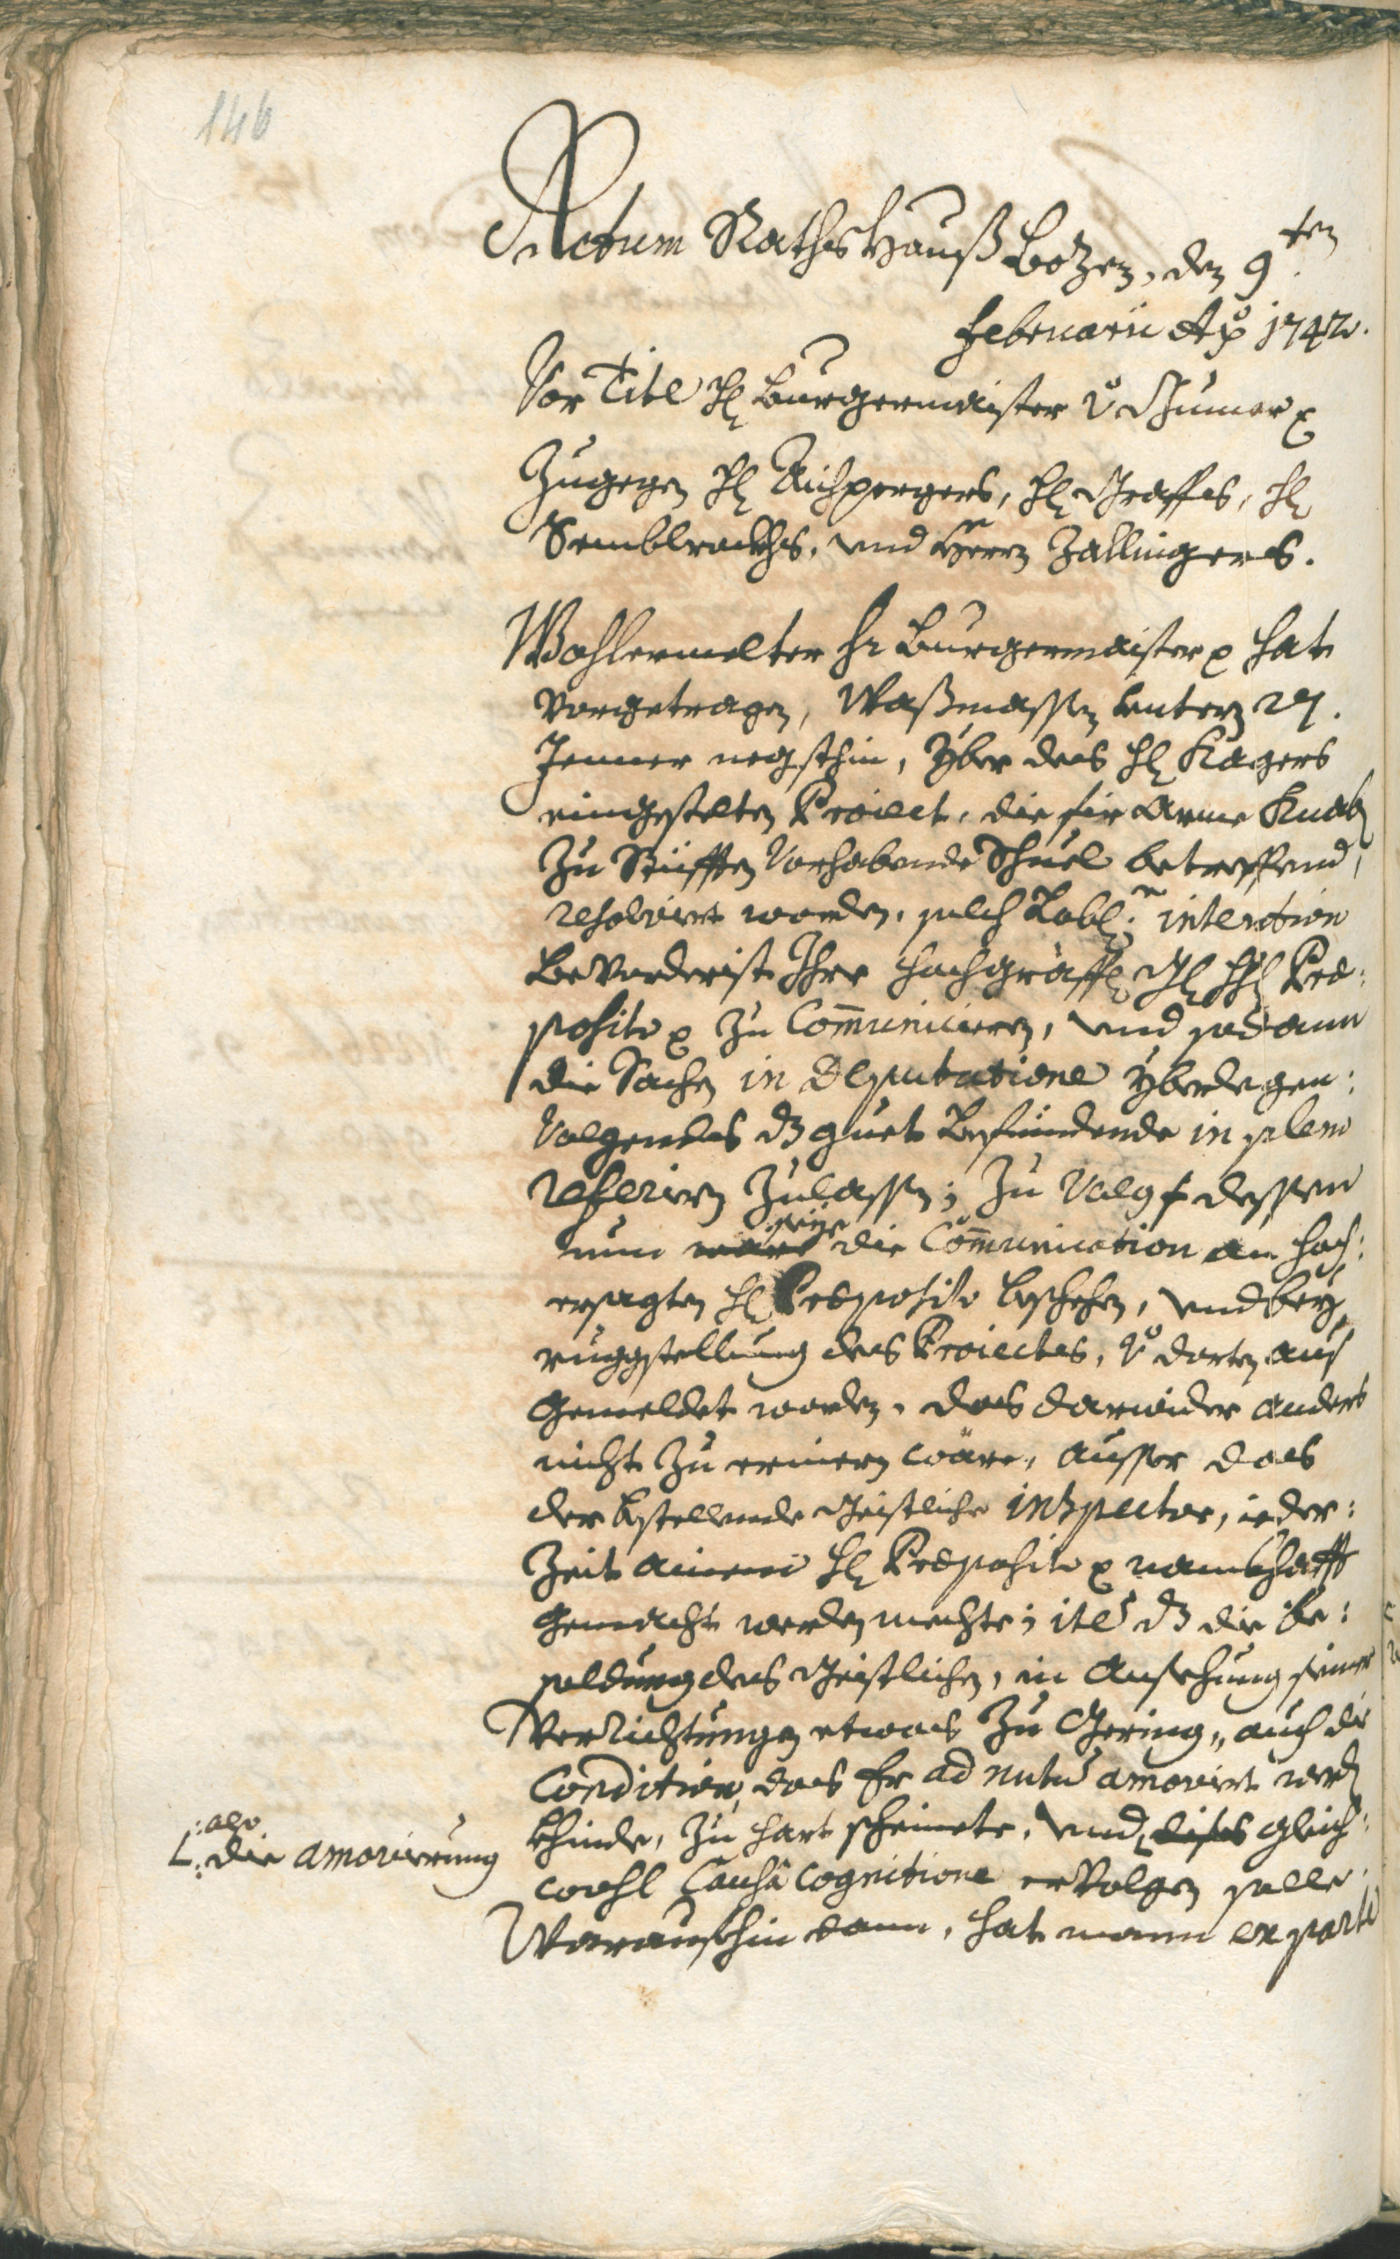 146
Actum Rathshauß Botzen, den 9ten
Februarii Ao 1742.
Vor Titl H: Burgermaister v: Gumer p
Zugegen H: Aichpergers, H: Graffes, H:
Semblrockhs, und Herrn Zallingers.
Wohlermelter Hr Burgermaister p hat
vorgetragen, Waßmassen untern 27.
Jenner negsthin, yber des H: Kagers
eingestelten Proiect, die fir Arme Knab:
zu Stüfften Vorhabende Schuel betreffend,
resolviert worden, solch Lobl:e intention
bevorderist Ihro Hochgräffl: Gl: H: Prae:
posito p zu Communiciern, und sodann
die Sachen in Deputatione yberlegen:
Volgendes dz guet befündende in pleno
referiern zulassen; Zu Volge dessen
nun wäre seye die Communication an Hoch:
ersagten H: Praeposito beschehen, und bey
ruggstellung des Proiectes, v: dorten aus
gemeldet worden, das darwider anders
nicht zu erinern wäre, ausser das
der bestellende Geistliche inspector, ieder:
Zeit ainem H: Praeposito p namhafft
gemacht werden mechte; ite dz die be:
soldung des Geistlichen, in Ansehung seiner
Verrichtungen etwas zu Gering, auch die
Condition, das Er ad nutu amoviert werd:
khinde, zu hart scheinete, und dises gleich:
:also
L: die amovierung
wohl Causâ cognitione ervolgen solle.
Woraufhin dann, hat mann ex parte